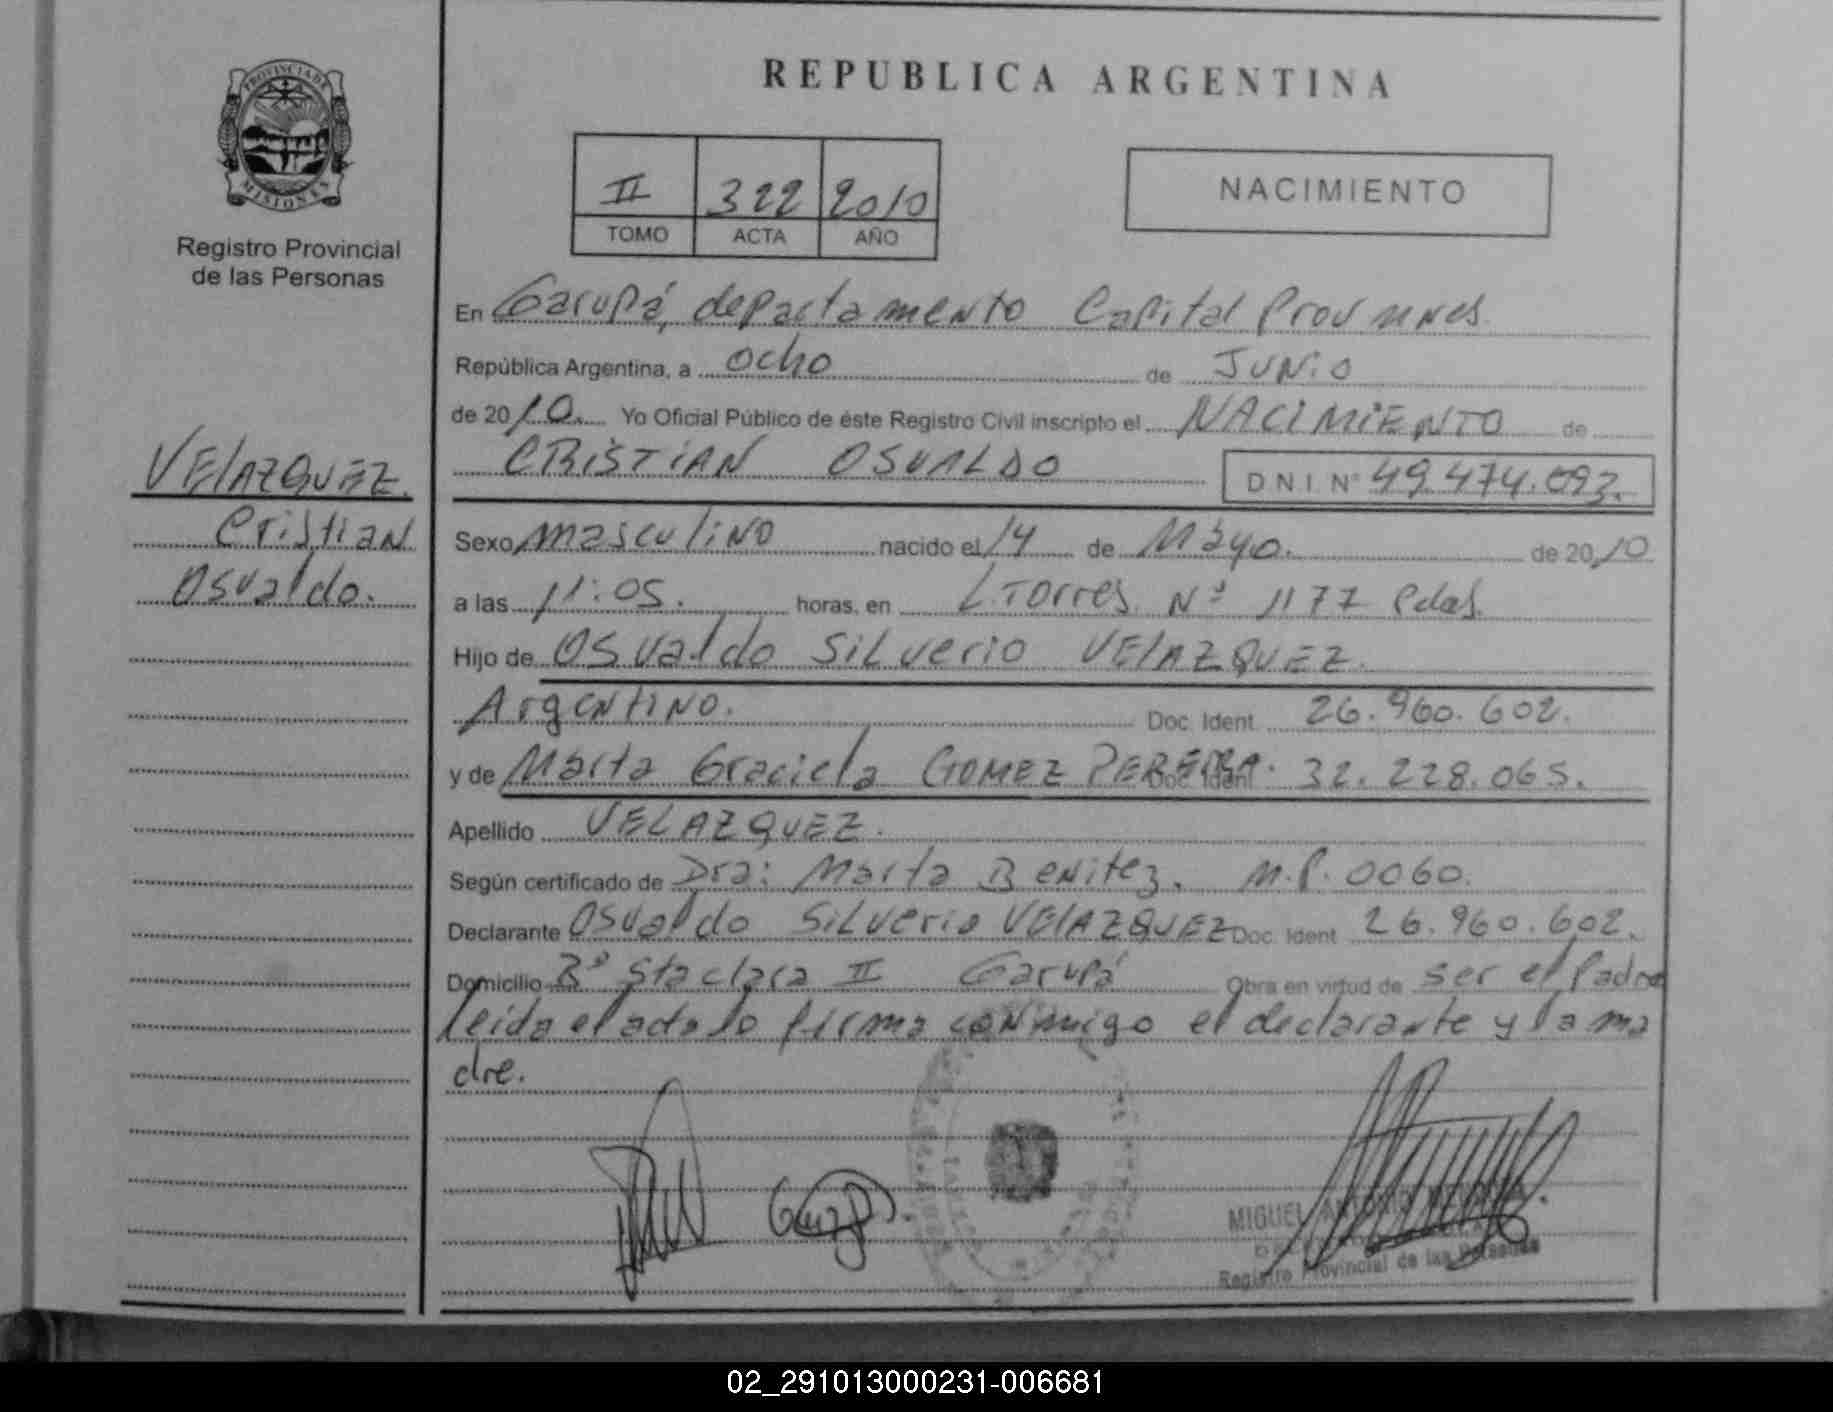 REPUBLICA ARGENTINA
PROVINCIA DE
MISIONES
Registro Provincial
de las Personas
II 322 2010
TOMO ACTA AÑO
NACIMIENTO
En Garupá, departamento Capital Prov
República Argentina, a ocho de JUNIO
de 2010. Yo Oficial Público de éste Registro Civil inscripto el NACIMIENTO de
CRISTIAN OSVALDO
DNI Nº 49.474.093.
VELAZQUEZ.
Cristian
Osvaldo.
Sexo masculino nacido el 14 de Mayo. de 2010
a las 11:05. horas, en L. Torres Nº 1177 Pdas.
Hijo de Osvaldo Silverio VELAZQUEZ.
Argentino. Doc. Ident. 26.960.602.
y de Marta Graciela GOMEZ PEREIRA. Doc. Ident. 32.228.065.
Apellido VELAZQUEZ.
Según certificado de Dra: Marta Benitez. M.P. 0060.
Declarante Osvaldo Silverio VELAZQUEZ Doc. Ident. 26.960.602.
Domicilio Bº Sta clara II Garupá Obra en virtud de ser el Padre
leida el acta lo firma conmigo el declarante y la ma
dre.
MIGUEL
Registro Provincial de las Personas
02_291013000231-006681